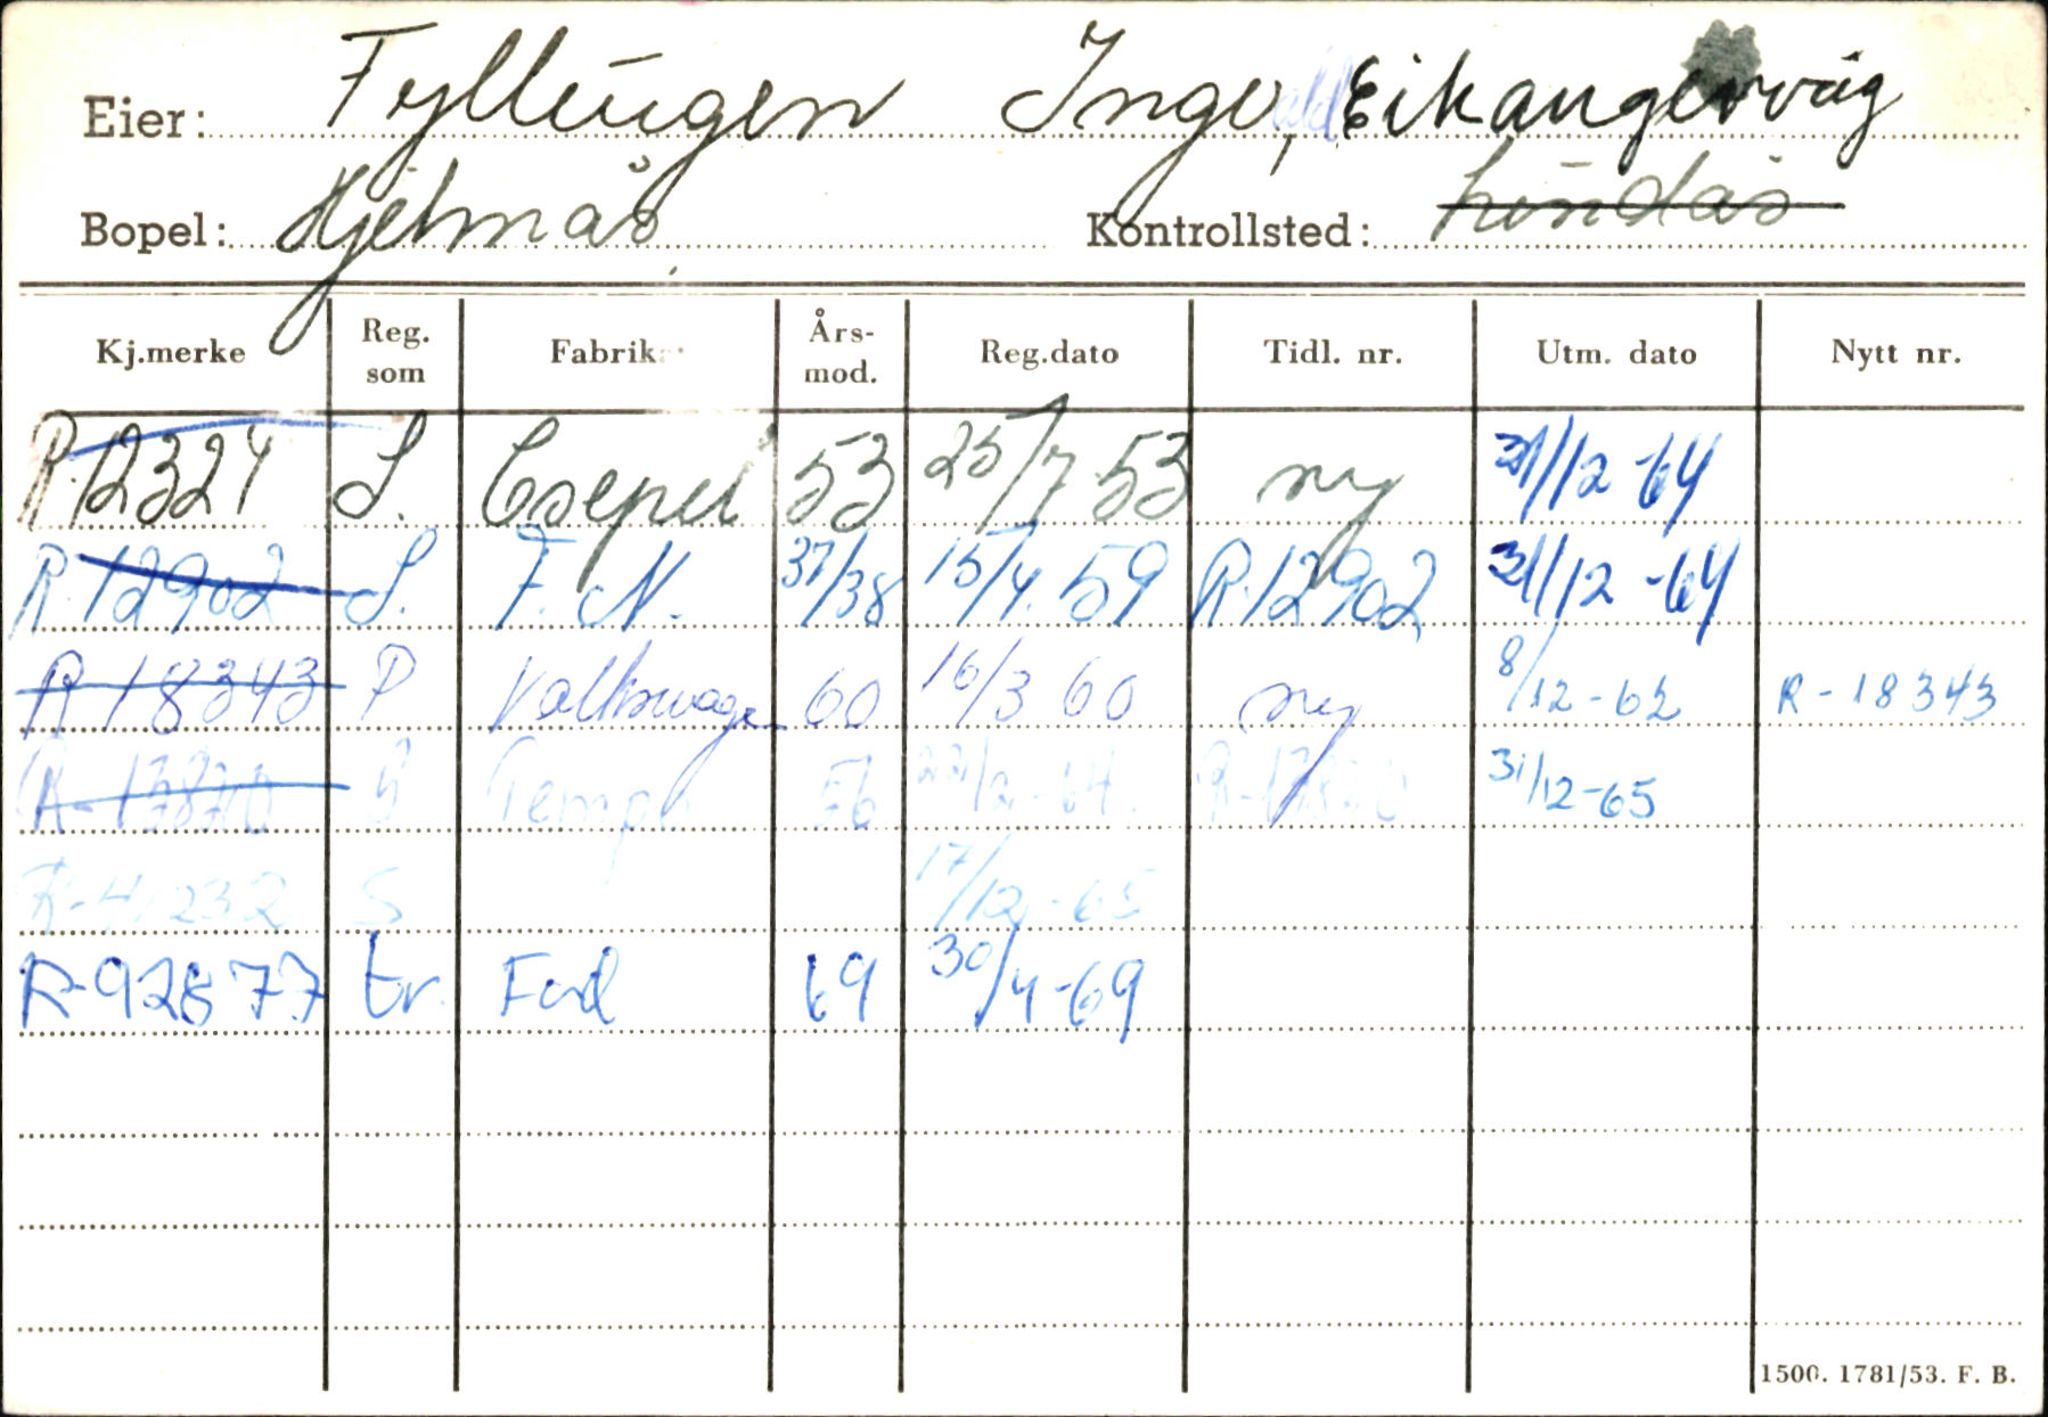 Eier: Fyllingen Inge, Eikangervåg
Bopel: Hjelmås Kontrollsted: Lindås
Kj.merke Reg. som Fabrikat Års-mod. Reg.dato Tidl. nr. Utm. dato Nytt nr.
R-12324 S. Csepel 53 25/7 53 ny 31/12-64
R-12902 S. F.N. 37/38 15/4. 59 R-12902 31/12-64
R-18343 P Volkswagen 60 16/3 60 ny 8/12-62 R-18343
R-17870 Tempo 56 22/2-64. R-17870 31/12-65
R-41232 S 17/12-65
R-92877 tr. Ford 69 30/4-69
1500. 1781/53. F. B.